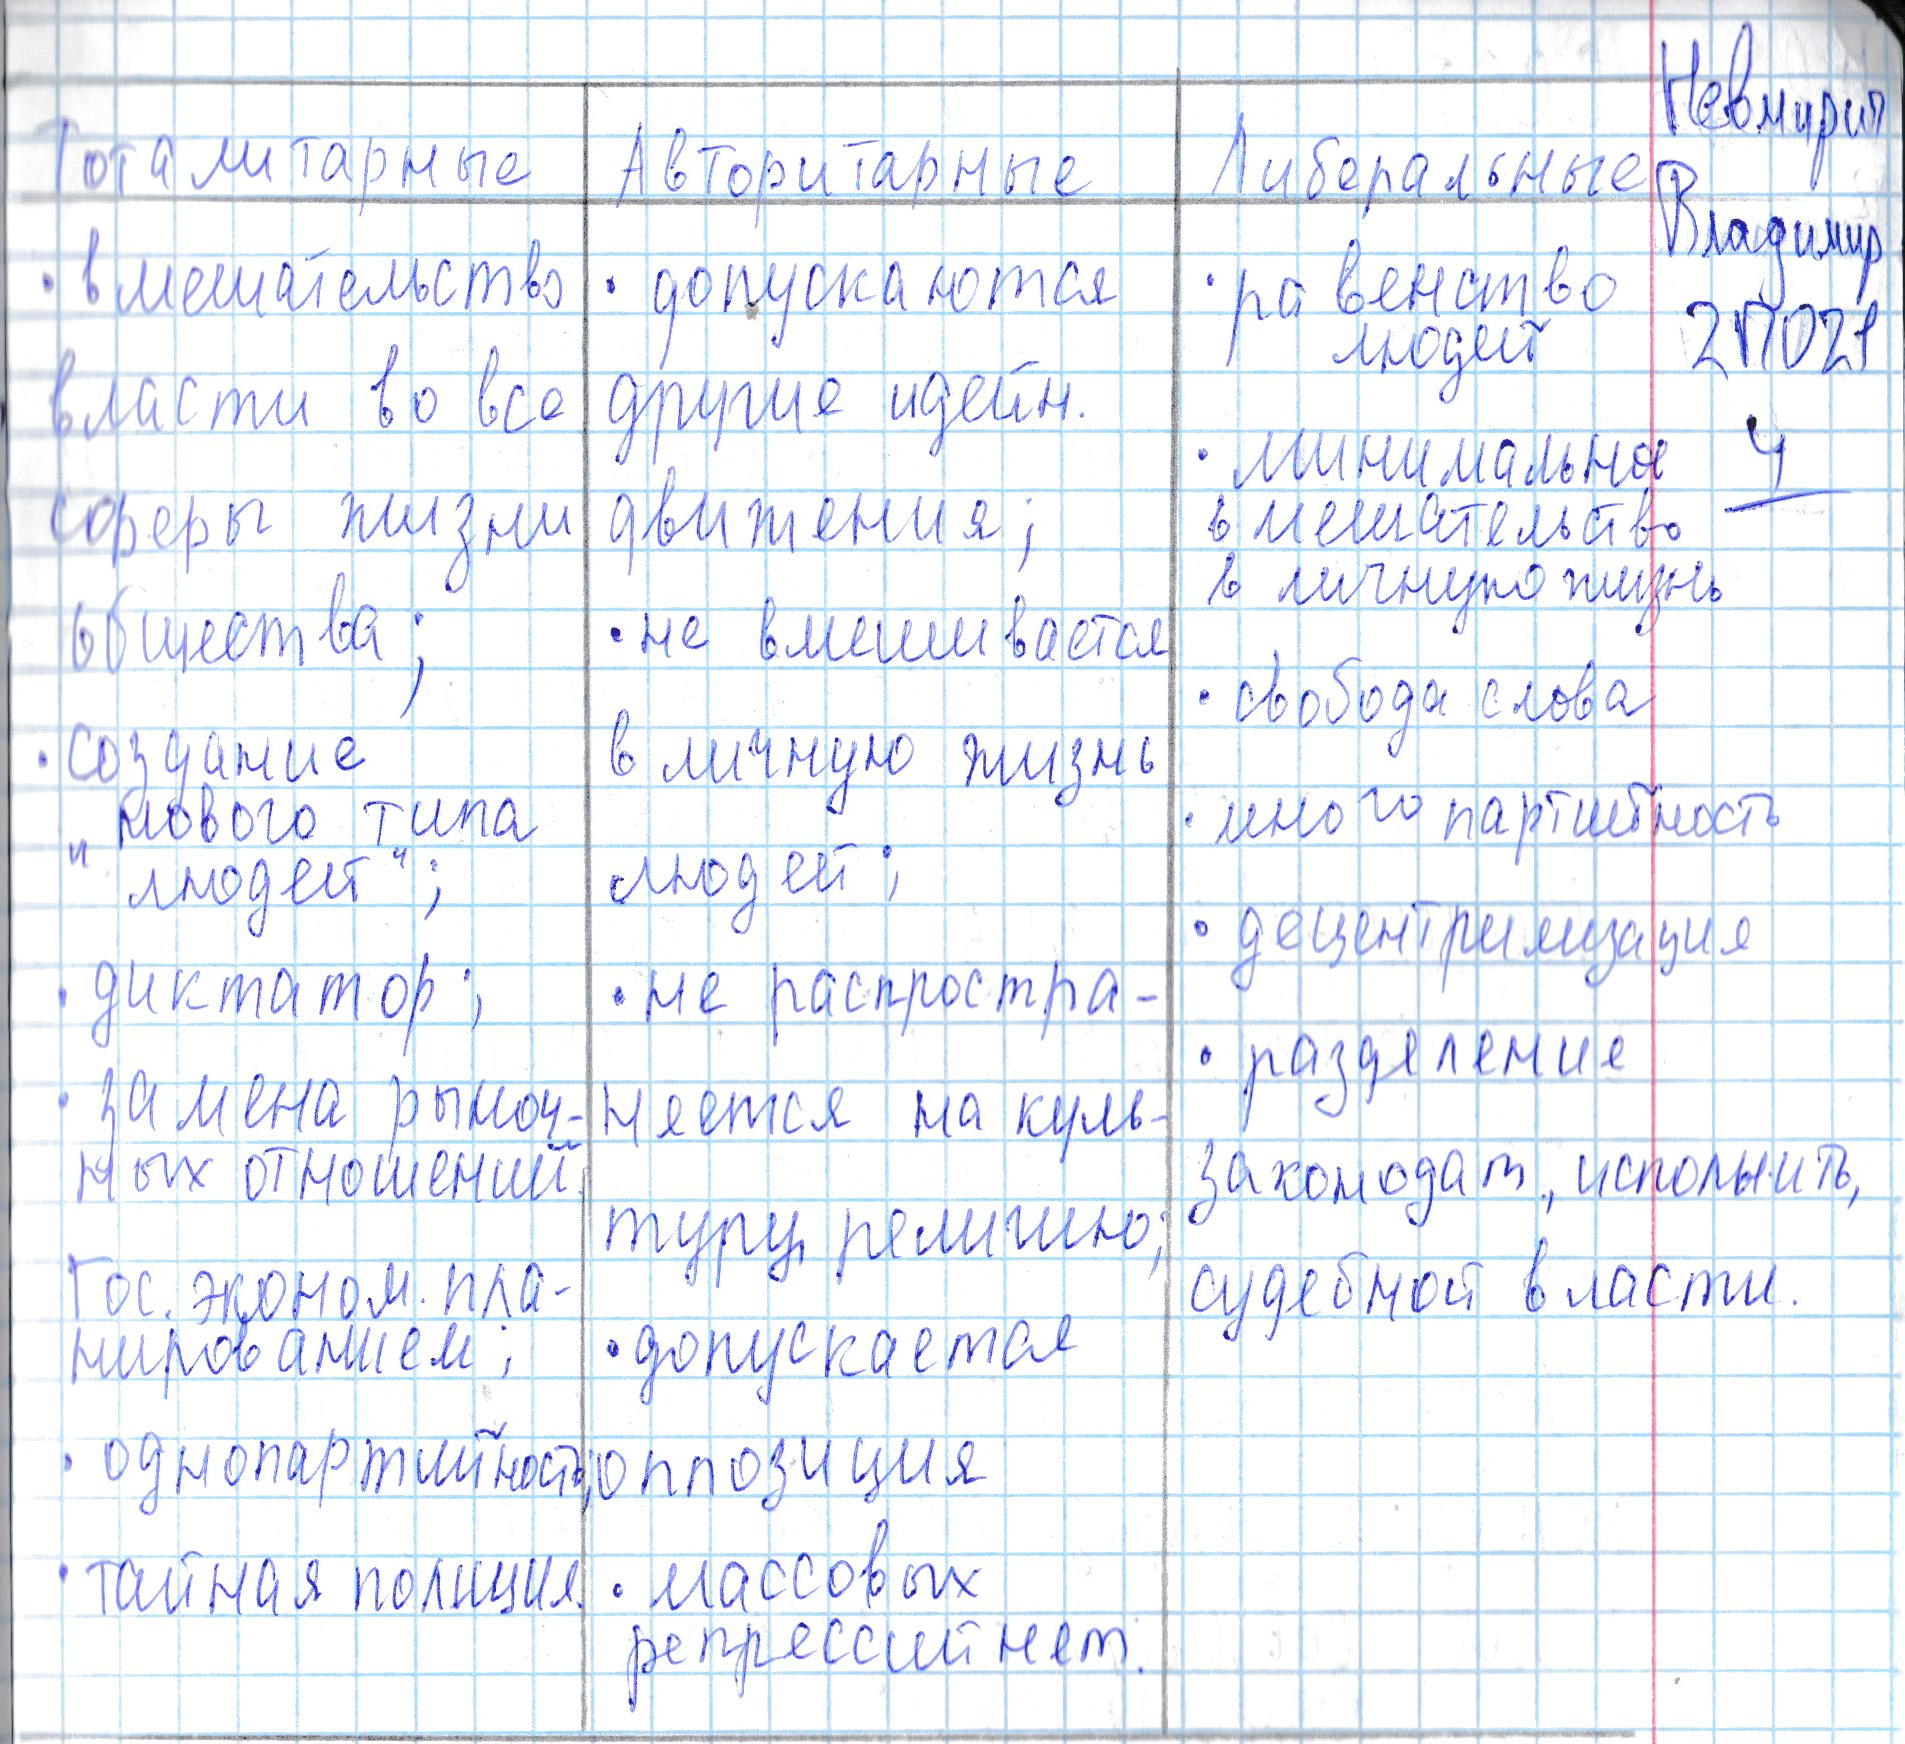 Тоталитарные
• вмешательство
власти во все
сферы жизни
общества;
• создание
"нового типа
людей";
• диктатор;
• замена рыноч-
ных отношений
Гос. эконом. пла-
нированием;
• однопартийность;
• тайная полиция.
Авторитарные
• допускаются
другие идейн.
движения;
• не вмешивается
в личную жизнь
людей;
• не распростра-
няется на куль-
туру, религию;
• допускается
оппозиция
• массовых
репрессий нет.
Либеральные
• равенство
людей
• минимальное
вмешательство
в личную жизнь
• свобода слова
• многопартийность
• децентрализация
• разделение
законодат., исполнить,
судебной власти.
Владимир
2ПО21
4